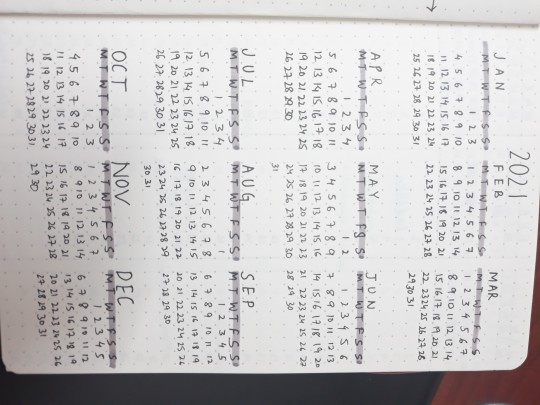 2021
JAN
M T W T F S S
1 2 3
4 5 6 7 8 9 10
11 12 13 14 15 16 17
18 19 20 21 22 23 24
25 26 27 28 29 30 31
FEB
M T W T F S S
1 2 3 4 5 6 7
8 9 10 11 12 13 14
15 16 17 18 19 20 21
22 23 24 25 26 27 28
MAR
M T W T F S S
1 2 3 4 5 6 7
8 9 10 11 12 13 14
15 16 17 18 19 20 21
22 23 24 25 26 27 28
29 30 31
APR
M T W T F S S
1 2 3 4
5 6 7 8 9 10 11
12 13 14 15 16 17 18
19 20 21 22 23 24 25
26 27 28 29 30
MAY
M T W T F S S
1 2
3 4 5 6 7 8 9
10 11 12 13 14 15 16
17 18 19 20 21 22 23
24 25 26 27 28 29 30
31
JUN
M T W T F S S
1 2 3 4 5 6
7 8 9 10 11 12 13
14 15 16 17 18 19 20
21 22 23 24 25 26 27
28 29 30
JUL
M T W T F S S
1 2 3 4
5 6 7 8 9 10 11
12 13 14 15 16 17 18
19 20 21 22 23 24 25
26 27 28 29 30 31
AUG
M T W T F S S
1
2 3 4 5 6 7 8
9 10 11 12 13 14 15
16 17 18 19 20 21 22
23 24 25 26 27 28 29
30 31
SEP
M T W T F S S
1 2 3 4 5
6 7 8 9 10 11 12
13 14 15 16 17 18 19
20 21 22 23 24 25 26
27 28 29 30
OCT
M T W T F S S
1 2 3
4 5 6 7 8 9 10
11 12 13 14 15 16 17
18 19 20 21 22 23 24
25 26 27 28 29 30 31
NOV
M T W T F S S
1 2 3 4 5 6 7
8 9 10 11 12 13 14
15 16 17 18 19 20 21
22 23 24 25 26 27 28
29 30
DEC
M T W T F S S
1 2 3 4 5
6 7 8 9 10 11 12
13 14 15 16 17 18 19
20 21 22 23 24 25 26
27 28 29 30 31